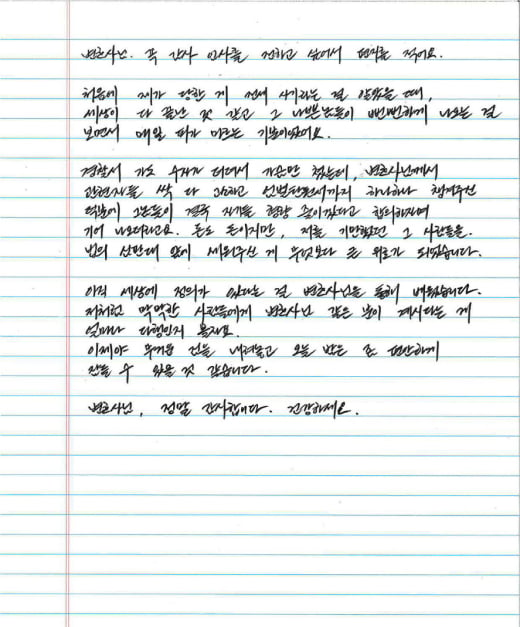 변호사님. 꼭 감사 인사를 전하고 싶어서 편지를 적어요.
처음에 제가 당한 게 전세 사기라는 걸 알았을 때,
세상이 다 끝난 것 같고 그 나쁜놈들이 뻔뻔하게 나오는 걸
보면서 매일 피가 마르는 기분이었어요.
경찰서 가도 수사가 더뎌서 가슴만 쳤는데, 변호사님께서
관련자들 싹 다 고소하고 선별탄원서까지 하나하나 챙겨주신
덕분에 그놈들이 결국 자기들 형량 줄이겠다고 합의하자며
기어 나오더라고요. 돈도 돈이지만, 저를 기만했던 그 사람들을
법의 심판대 앞에 세워주신 게 무엇보다 큰 위로가 되었습니다.
아직 세상에 정의가 있다는 걸 변호사님을 통해 배웠습니다.
저처럼 막막한 사람들에게 변호사님 같은 분이 계시다는 게
얼마나 다행인지 몰라요.
이제야 무거운 짐을 내려놓고 오늘 밤은 좀 편안하게
잠들 수 있을 것 같습니다.
변호사님, 정말 감사합니다. 건강하세요.